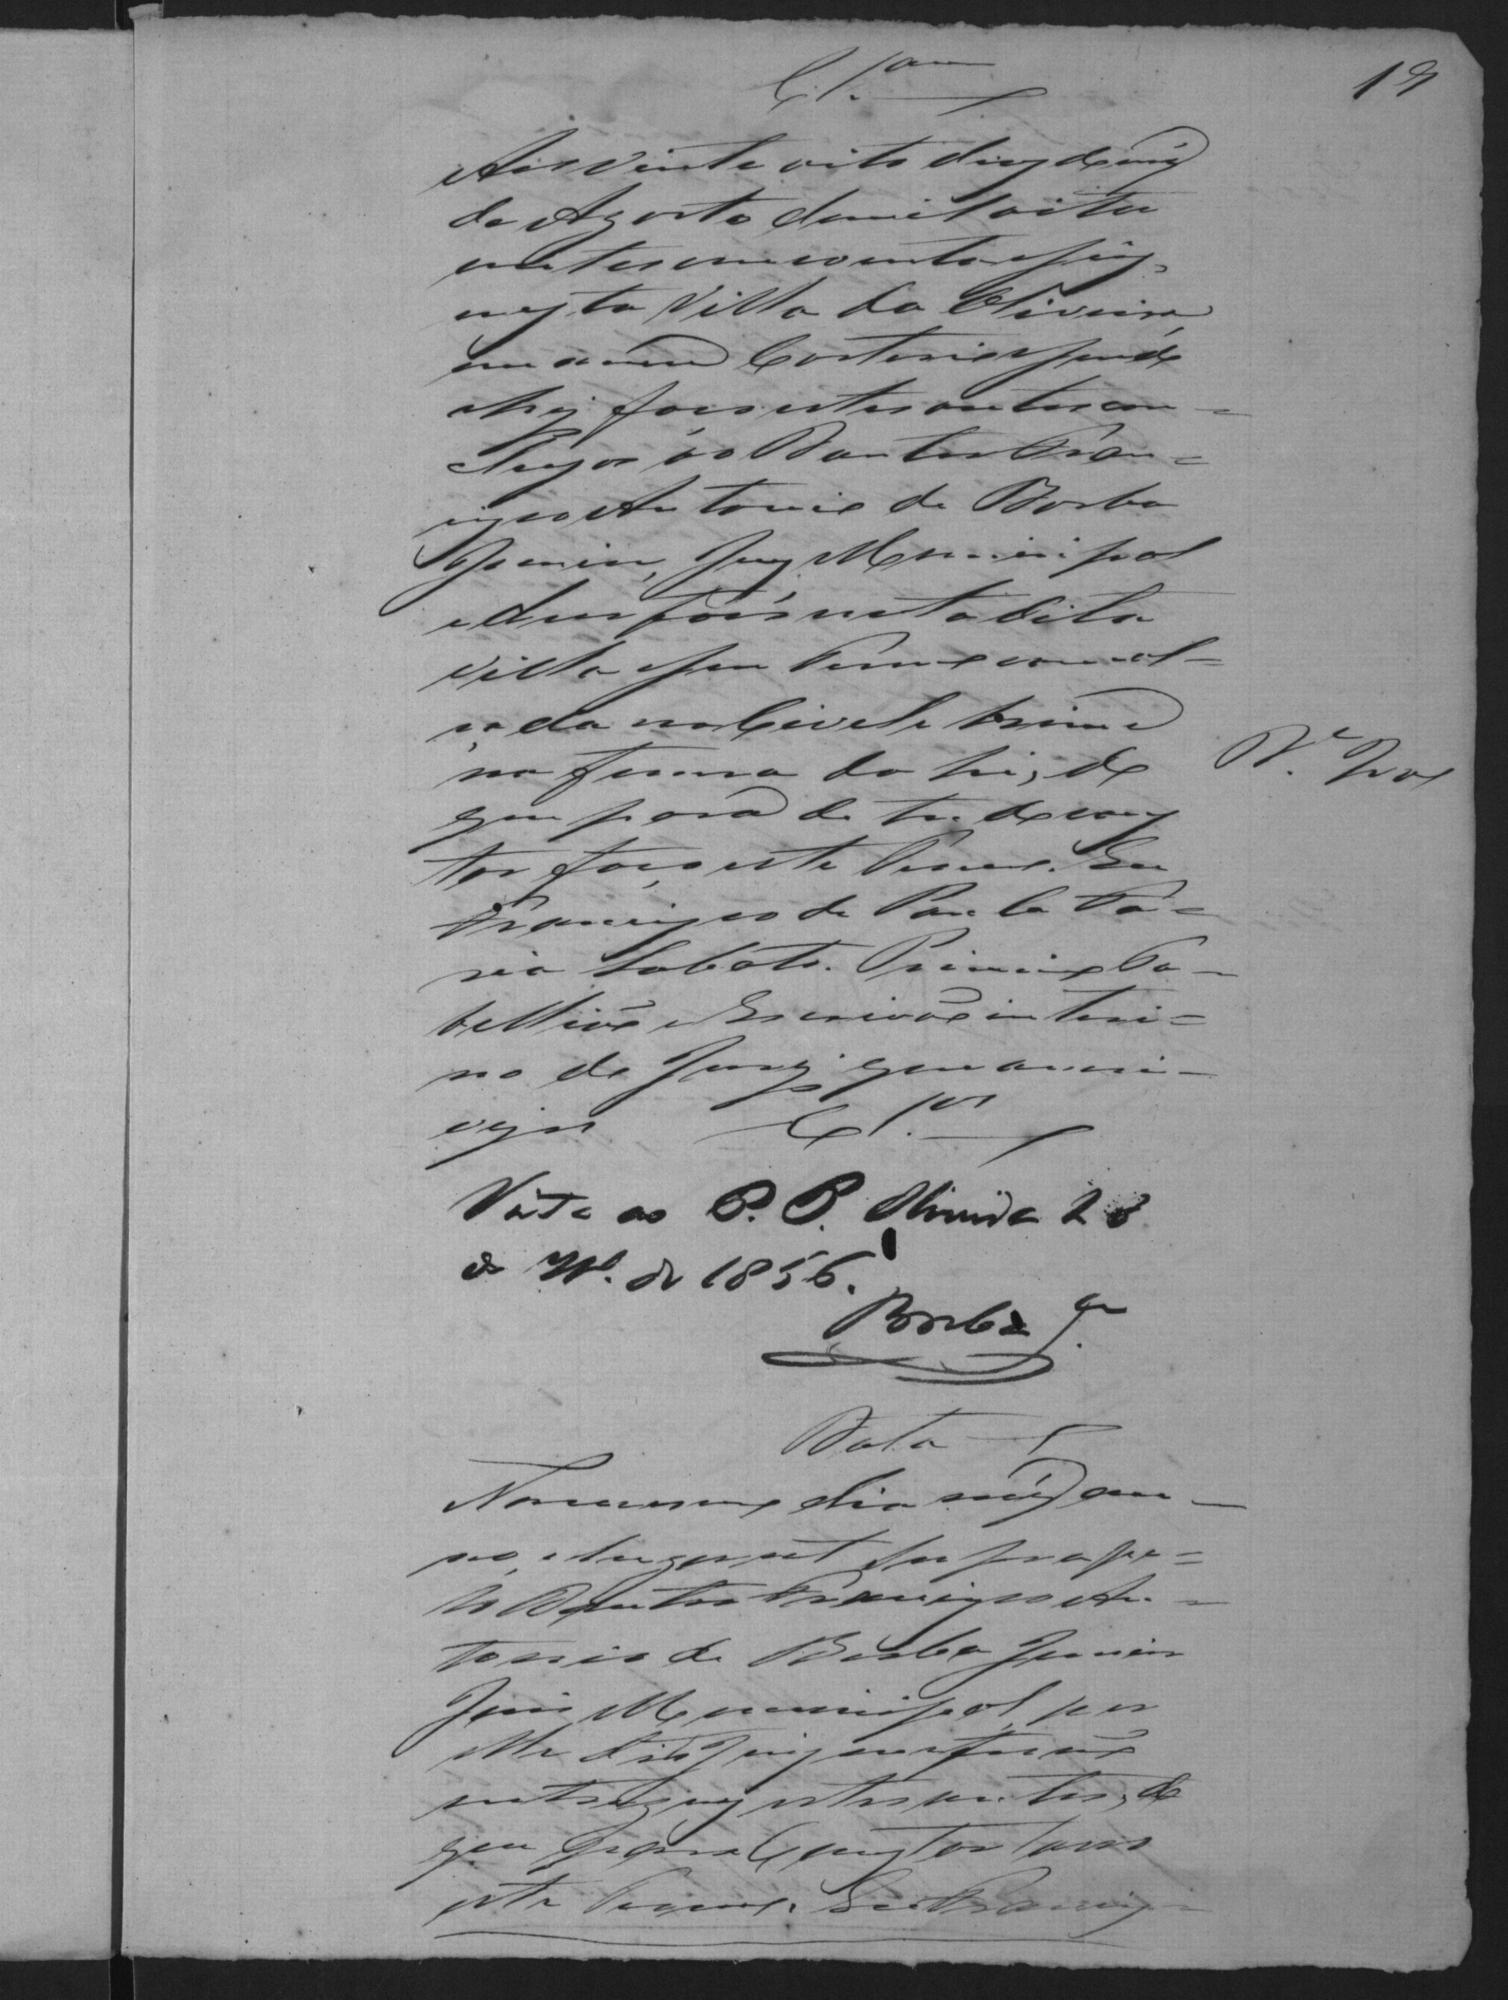 19
Cl.ᵃᵐ
Aos vinte oito dias do mez
de Agosto de mil oito
centos cincoenta e seis,
nesta Villa da Oliveira
em o meu Cartorio sendo
ahi faço estes autos con=
clusos ao Doutor Fran=
cisco Antonio de Borba
Junior, Juiz Municipal
e Orfaõs nesta dita
Villa e seu Termo com al=
çada no Civel e Crime
na forma da Lei, de
que para de tudo cons
tar faço este Termo. Eu
Francisco de Paula Fa=
ria Lobato. Primeiro Ta-
belliaõ e Escrivaõ interi=
no do Jury que o escre-
vi
Cl.ᵒˢ
Vista ao P. P. Oliveira 28
de de 1856.
Borba Jᵒʳ
Data
No mesmo dia mez an-
no, e lugar ut supra pe=
lo Doutor Francisco An=
tonio de Borba Junior
Juis Municipal por
elle dito Juiz me foraõ
entregues estes autos, de
que para Constar faço
este Termo. Eu Francis=